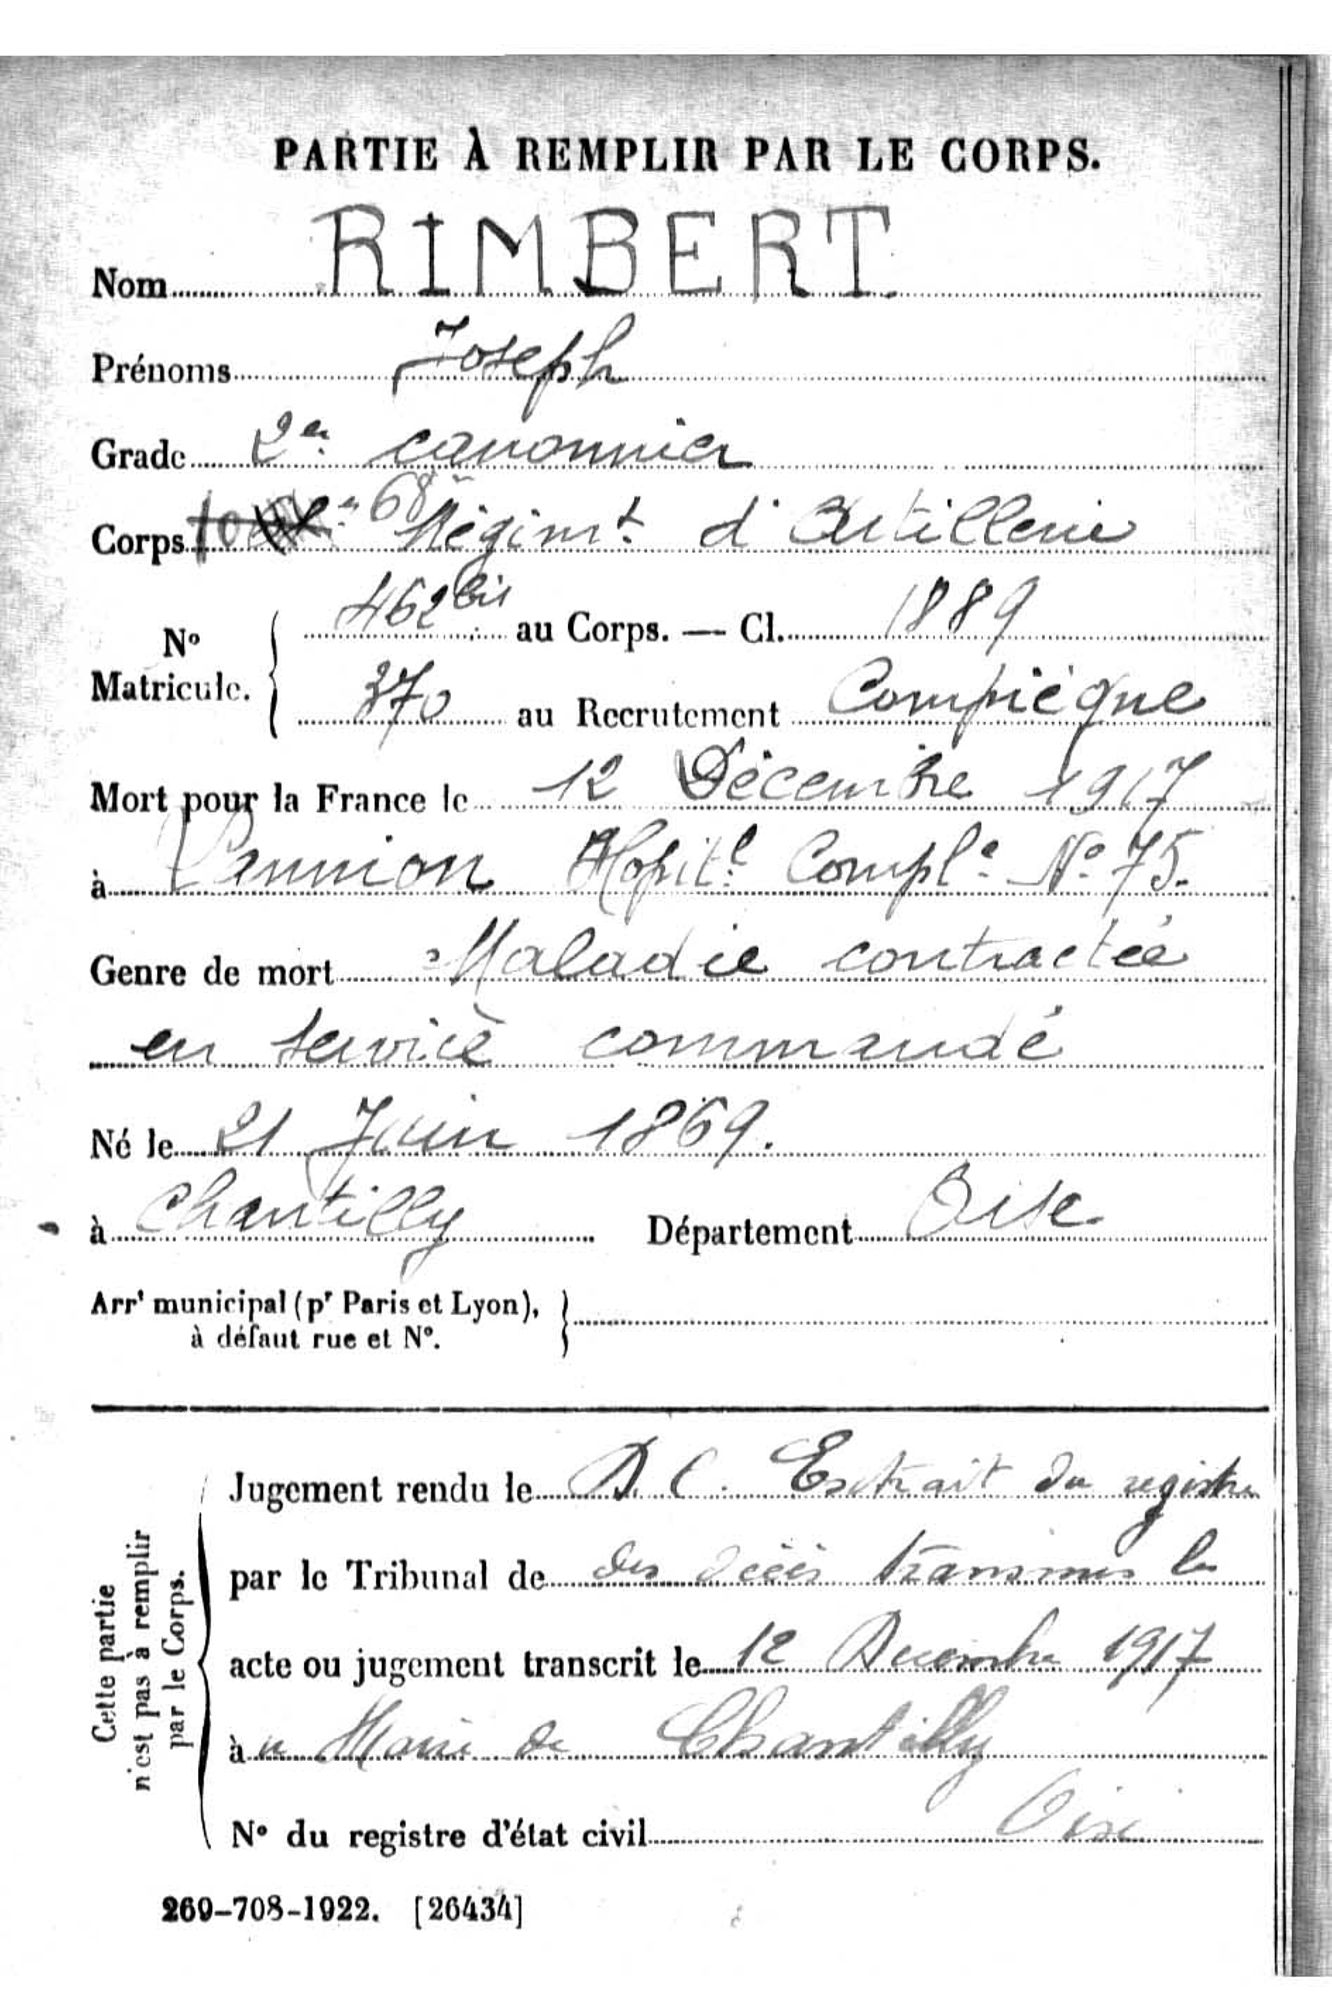 PARTIE À REMPLIR PAR LE CORPS.
Nom RIMBERT
Prénoms Joseph
Grade 2e canonnier
Corps 68e Régimt d'Artillerie
No Matricule. 462 bis au Corps. — Cl. 1889
370 au Recrutement Compiègne
Mort pour la France le 12 Décembre 1917
à Lannion Hopitl Comple No 75.
Genre de mort Maladie contractée
en service commandé
Né le 21 Juin 1869.
à Chantilly Département Oise
Arrt municipal (pr Paris et Lyon),
à défaut rue et No.
Cette partie
n'est pas à remplir
par le Corps.
Jugement rendu le D. C. Extrait du registre
par le Tribunal de des décès transmis le
acte ou jugement transcrit le 12 Decembre 1917
à Mairie de Chantilly
No du registre d'état civil Oise
269-708-1922. [26434]